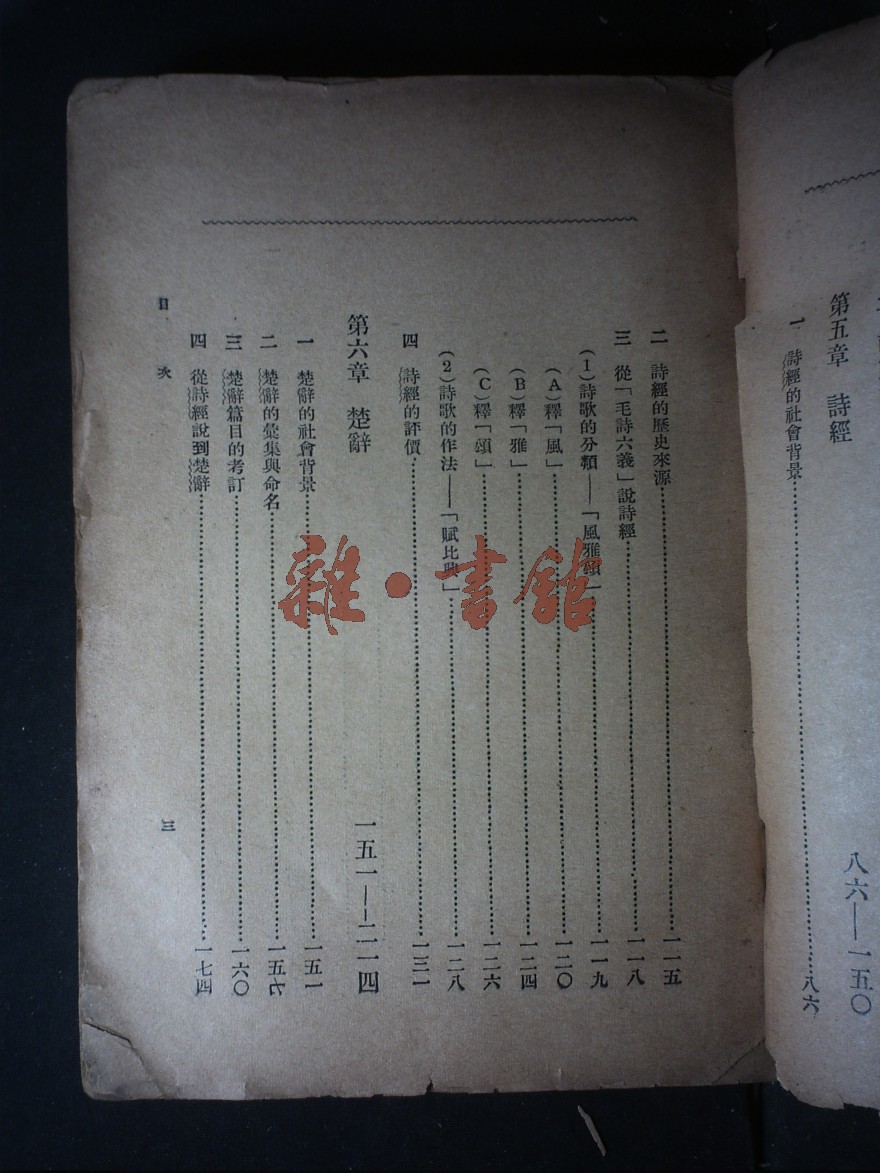 第五章 詩經 八六——一五〇
一 詩經的社會背景 八六
二 詩經的歷史來源 一一五
三 從「毛詩六義」說詩經 一一八
(1)詩歌的分類——「風雅頌」 一一九
(A)釋「風」 一二〇
(B)釋「雅」 一二四
(C)釋「頌」 一二六
(2)詩歌的作法——「賦比興」 一二八
四 詩經的評價 一三一
第六章 楚辭 一五一——二一四
一 楚辭的社會背景 一五一
二 楚辭的彙集與命名 一五七
三 楚辭篇目的考訂 一六〇
四 從詩經說到楚辭 一七四
目次 三
雜·書館